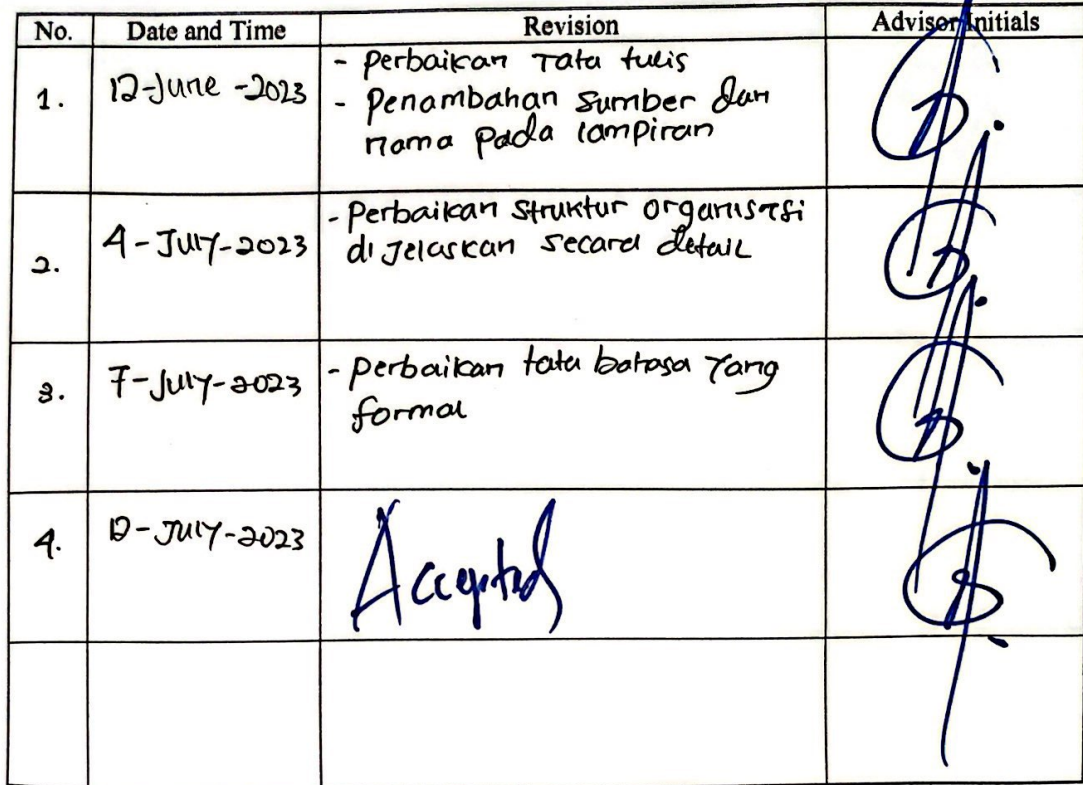 No. Date and Time Revision Advisor Initials
1. 12-June-2023 - Perbaikan Tata tulis
- Penambahan sumber dan
nama pada lampiran
2. 4-July-2023 - Perbaikan struktur organisasi
di jelaskan secara detail
3. 7-July-2023 - Perbaikan tata bahasa yang
formal
4. 12-July-2023 Accepted